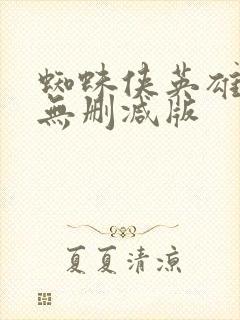 蜘蛛侠英雄
無删减版
夏夏清凉